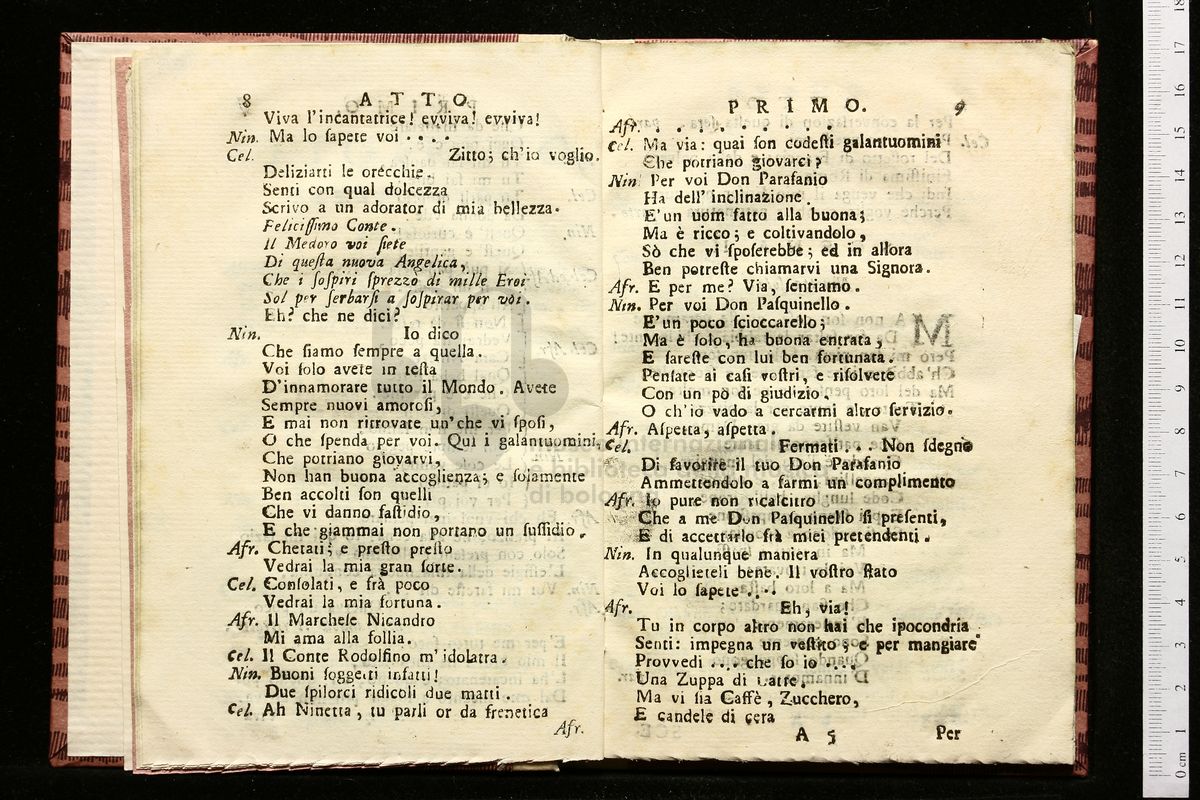 8 ATTO.
Viva l'incantatrice! evviva! evviva!
Nin. Ma lo sapete voi . . .
Cel. Zitto; ch'io voglio.
Deliziarti le orecchie.
Senti con qual dolcezza
Scrivo a un adorator di mia bellezza.
Felicissimo Conte.
Il Medoro voi siete
Di questa nuova Angelica,
Che i sospiri sprezzo di mille Eroi
Sol per serbarsi a sospirar per voi.
Eh? che ne dici?
Nin. Io dico
Che siamo sempre a quella.
Voi solo avete in testa
D'innamorare tutto il Mondo. Avete
Sempre nuovi amorosi,
E mai non ritrovate un'che vi sposi,
O che spenda per voi. Qui i galantuomini,
Che potriano giovarvi,
Non han buona accoglienza; e solamente
Ben accolti son quelli
Che vi danno fastidio,
E che giammai non portano un sussidio.
Afr. Chetati; e presto presto
Vedrai la mia gran sorte.
Cel. Consolati, e frà poco
Vedrai la mia fortuna.
Afr. Il Marchese Nicandro
Mi ama alla follia.
Cel. Il Conte Rodolfino m'idolatra.
Nin. Buoni soggetti infatti!
Due spilorci ridicoli due matti.
Cel. Ah Ninetta, tu parli or da frenetica
Afr.
PRIMO. 9
Afr. . . . . . . . . . .
Cel. Ma via: quai son codesti galantuomini
Che potriano giovarci?
Nin. Per voi Don Parafanio
Ha dell'inclinazione.
E'un uom fatto alla buona;
Ma è ricco; e coltivandolo,
Sò che vi sposerebbe; ed in allora
Ben potreste chiamarvi una Signora.
Afr. E per me? Via, sentiamo.
Nin. Per voi Don Pasquinello.
E'un poco scioccarello;
Ma è solo, ha buona entrata,
E sareste con lui ben fortunata.
Pensate ai casi vostri, e risolvete
Con un pò di giudizio.
O ch'io vado a cercarmi altro servizio.
Afr. Aspetta, aspetta.
Cel. Fermati . . . Non sdegno
Di favorire il tuo Don Parafanio
Ammettendolo a farmi un complimento
Afr. Io pure non ricalcitro
Che a me Don Pasquinello si presenti,
E di accettarlo frà miei pretendenti.
Nin. In qualunque maniera
Accoglieteli bene. Il vostro stato
Voi lo sapete . . .
Afr. Eh, via!
Tu in corpo altro non hai che ipocondria.
Senti: impegna un vestito; e per mangiare
Provvedi . . . che so io . . .
Una Zuppa di Latte,
Ma vi sia Caffè, Zucchero,
E candele di cera
A 5 Per